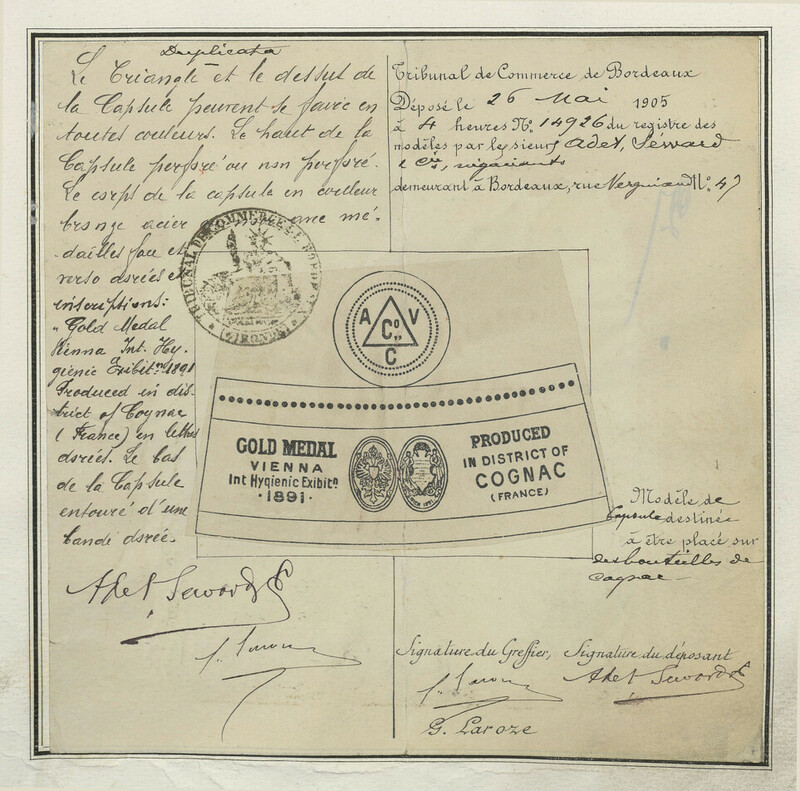 Duplicata
Le Triangle et le dessus de
la Capsule peuvent se faire en
toutes couleurs. Le haut de la
Capsule perforé ou non perforé.
Le corps de la capsule en couleur
bronze acier avec mé-
dailles face et
verso dorées et
inscriptions:
"Gold Medal
Vienna Int. Hy-
gienic Exibit.on 1891
Produced in dis-
trict of Cognac
(France) en lettres
dorées. Le bas
de la Capsule
entouré d'une
bande dorée.
Adet Seward & Co
Tribunal de Commerce de Bordeaux
Déposé le 26 Mai 1905
à 4 heures No. 14926 du registre des
modèles par les sieurs Adet, Seward
& Cie, négociants
demeurant à Bordeaux, rue Vergniaud No. 47
TRIBUNAL DE COMMERCE DE BORDEAUX
(GIRONDE)
A Co V
C
GOLD MEDAL
VIENNA
Int Hygienic Exhibitn
·1891·
PRODUCED
IN DISTRICT OF
COGNAC
(FRANCE)
Modèle de
Capsule destinée
à être placé sur
des bouteilles de
cognac
Signature du Greffier, Signature du déposant
Adet Seward & Co
G. Laroze